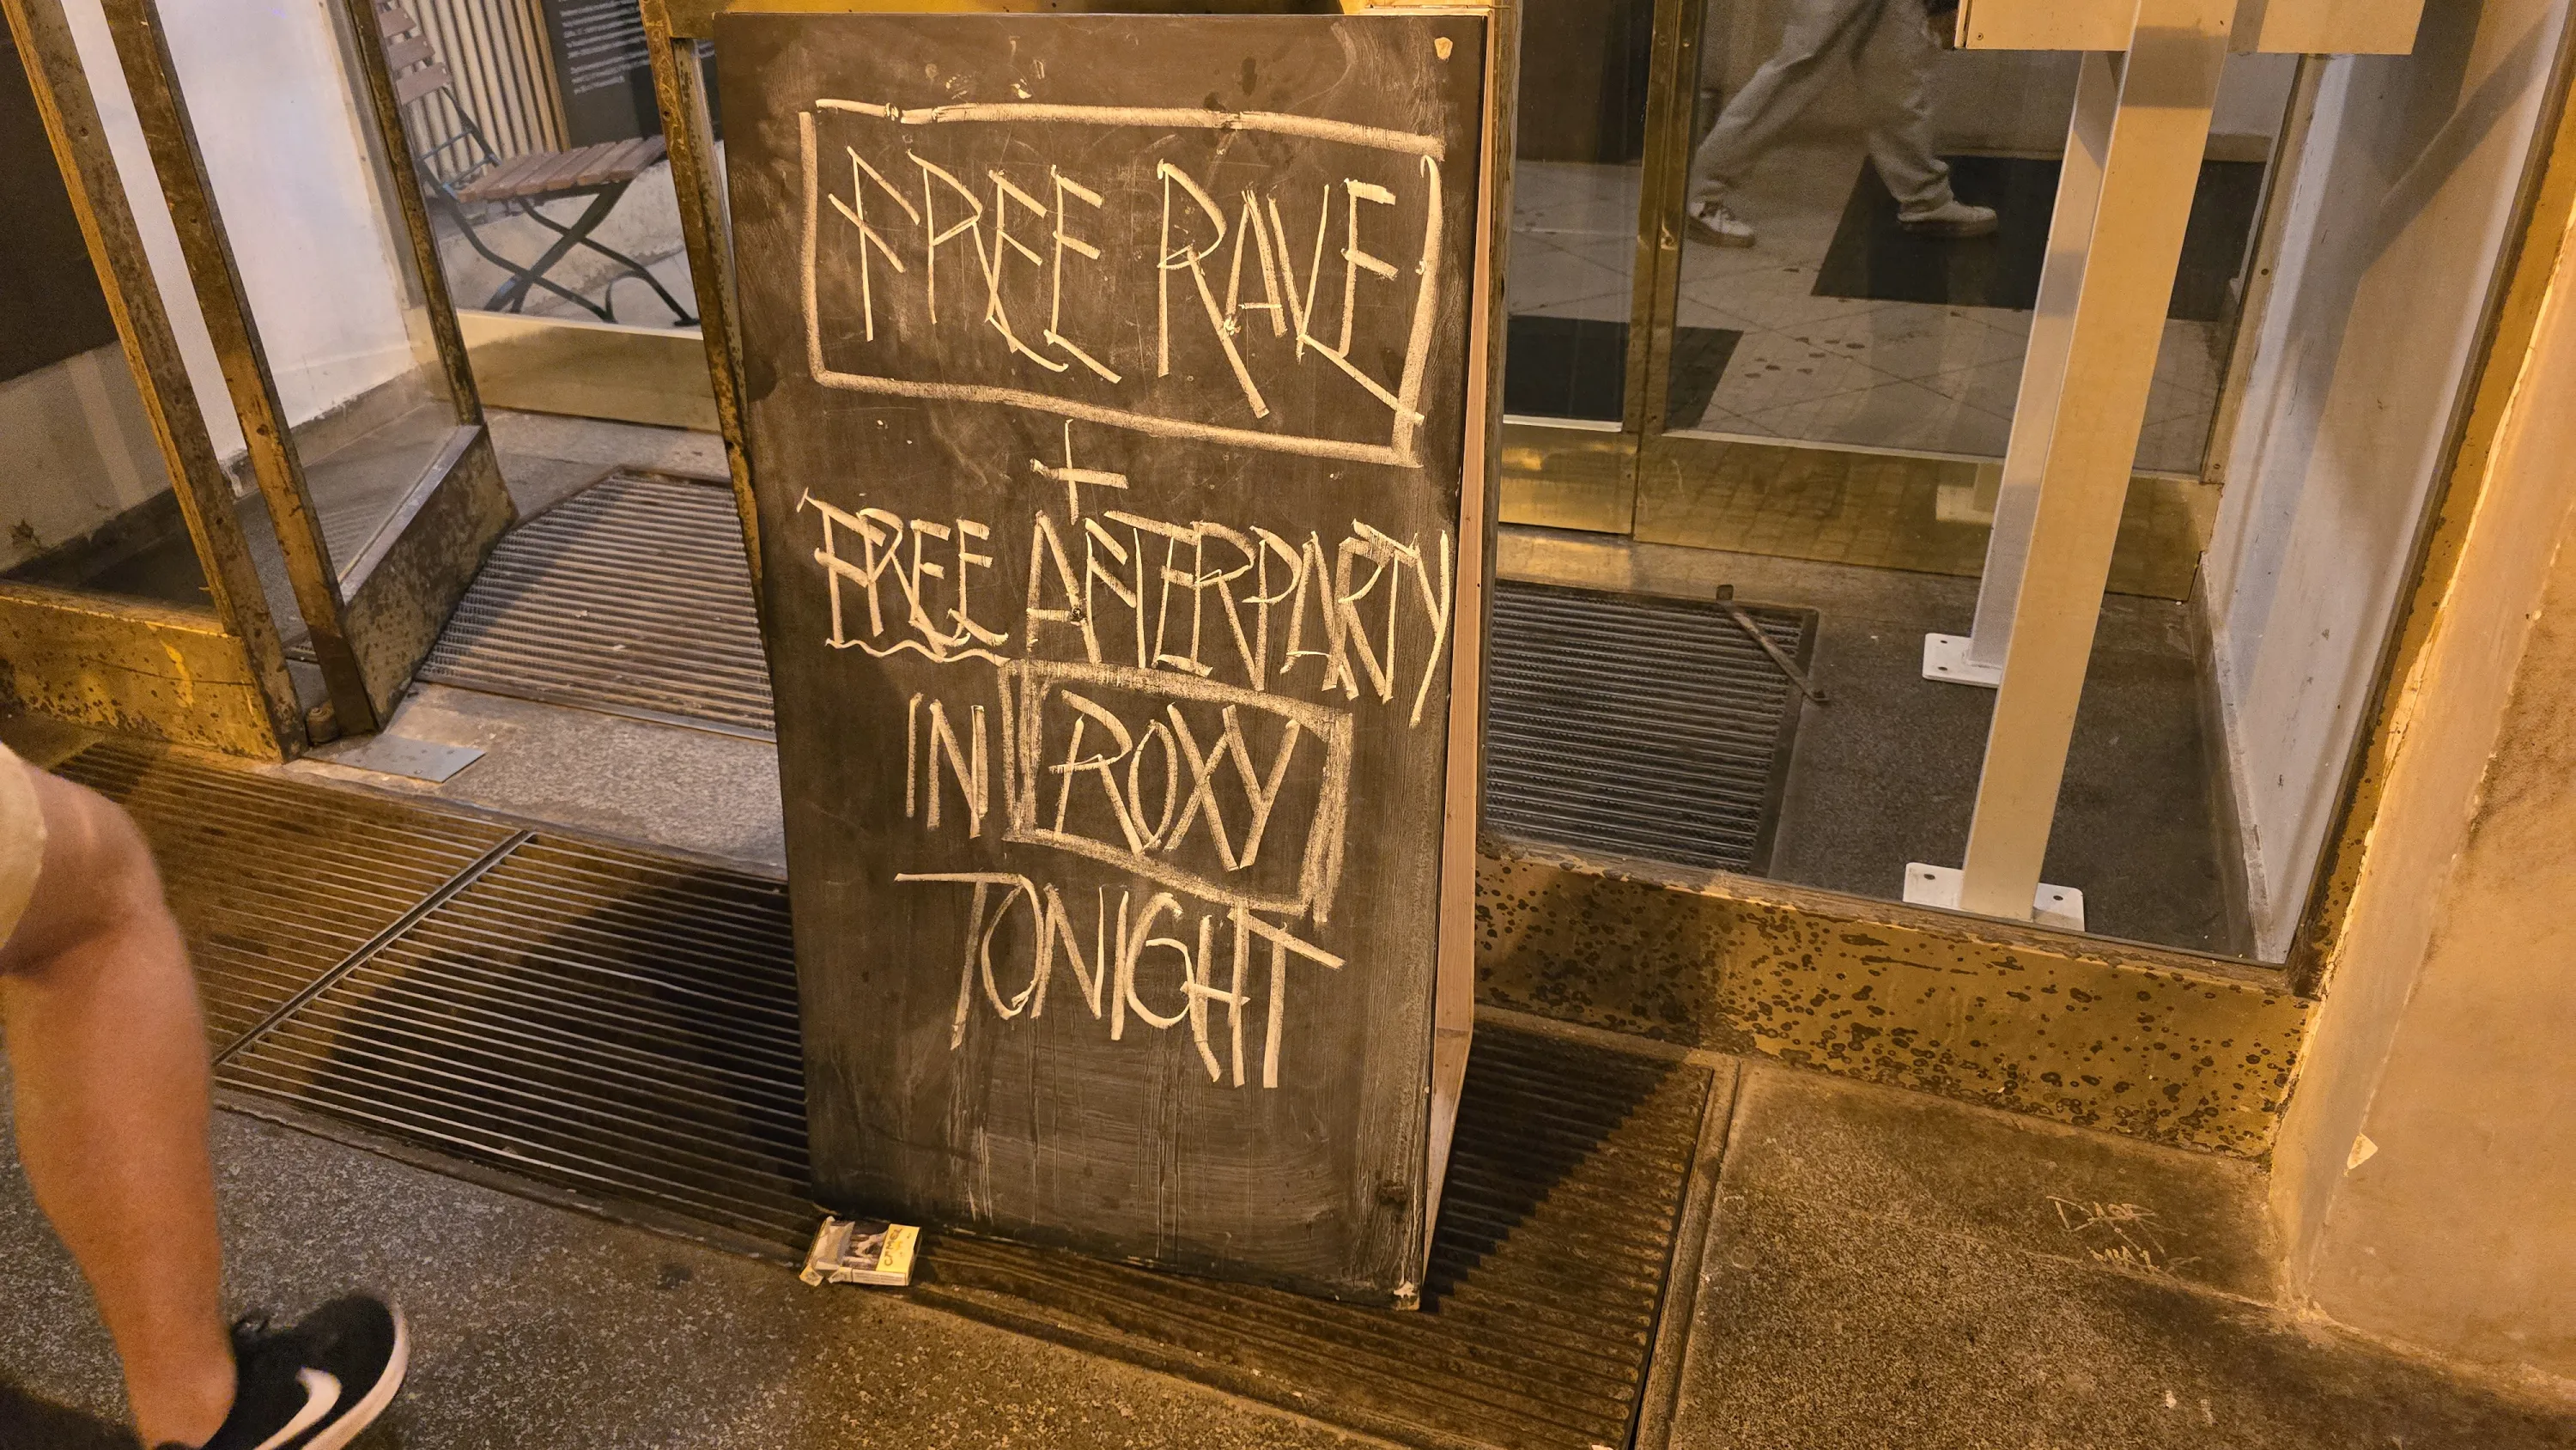 FREE RAVE
+
FREE AFTERPARTY
IN ROXY
TONIGHT
CAMEL